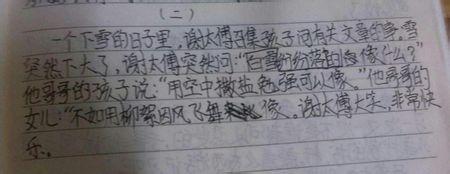 （二）
一个下雪的日子里，谢太傅召集孩子问有关文章的事。雪
突然下大了，谢太傅突然问：“白雪纷纷落的忽像什么？”
他哥哥的孩子说：“用空中撒盐勉强可以像。”他哥哥的
女儿：“不如用柳絮因风飞舞像。谢太傅大笑，非常快
乐。